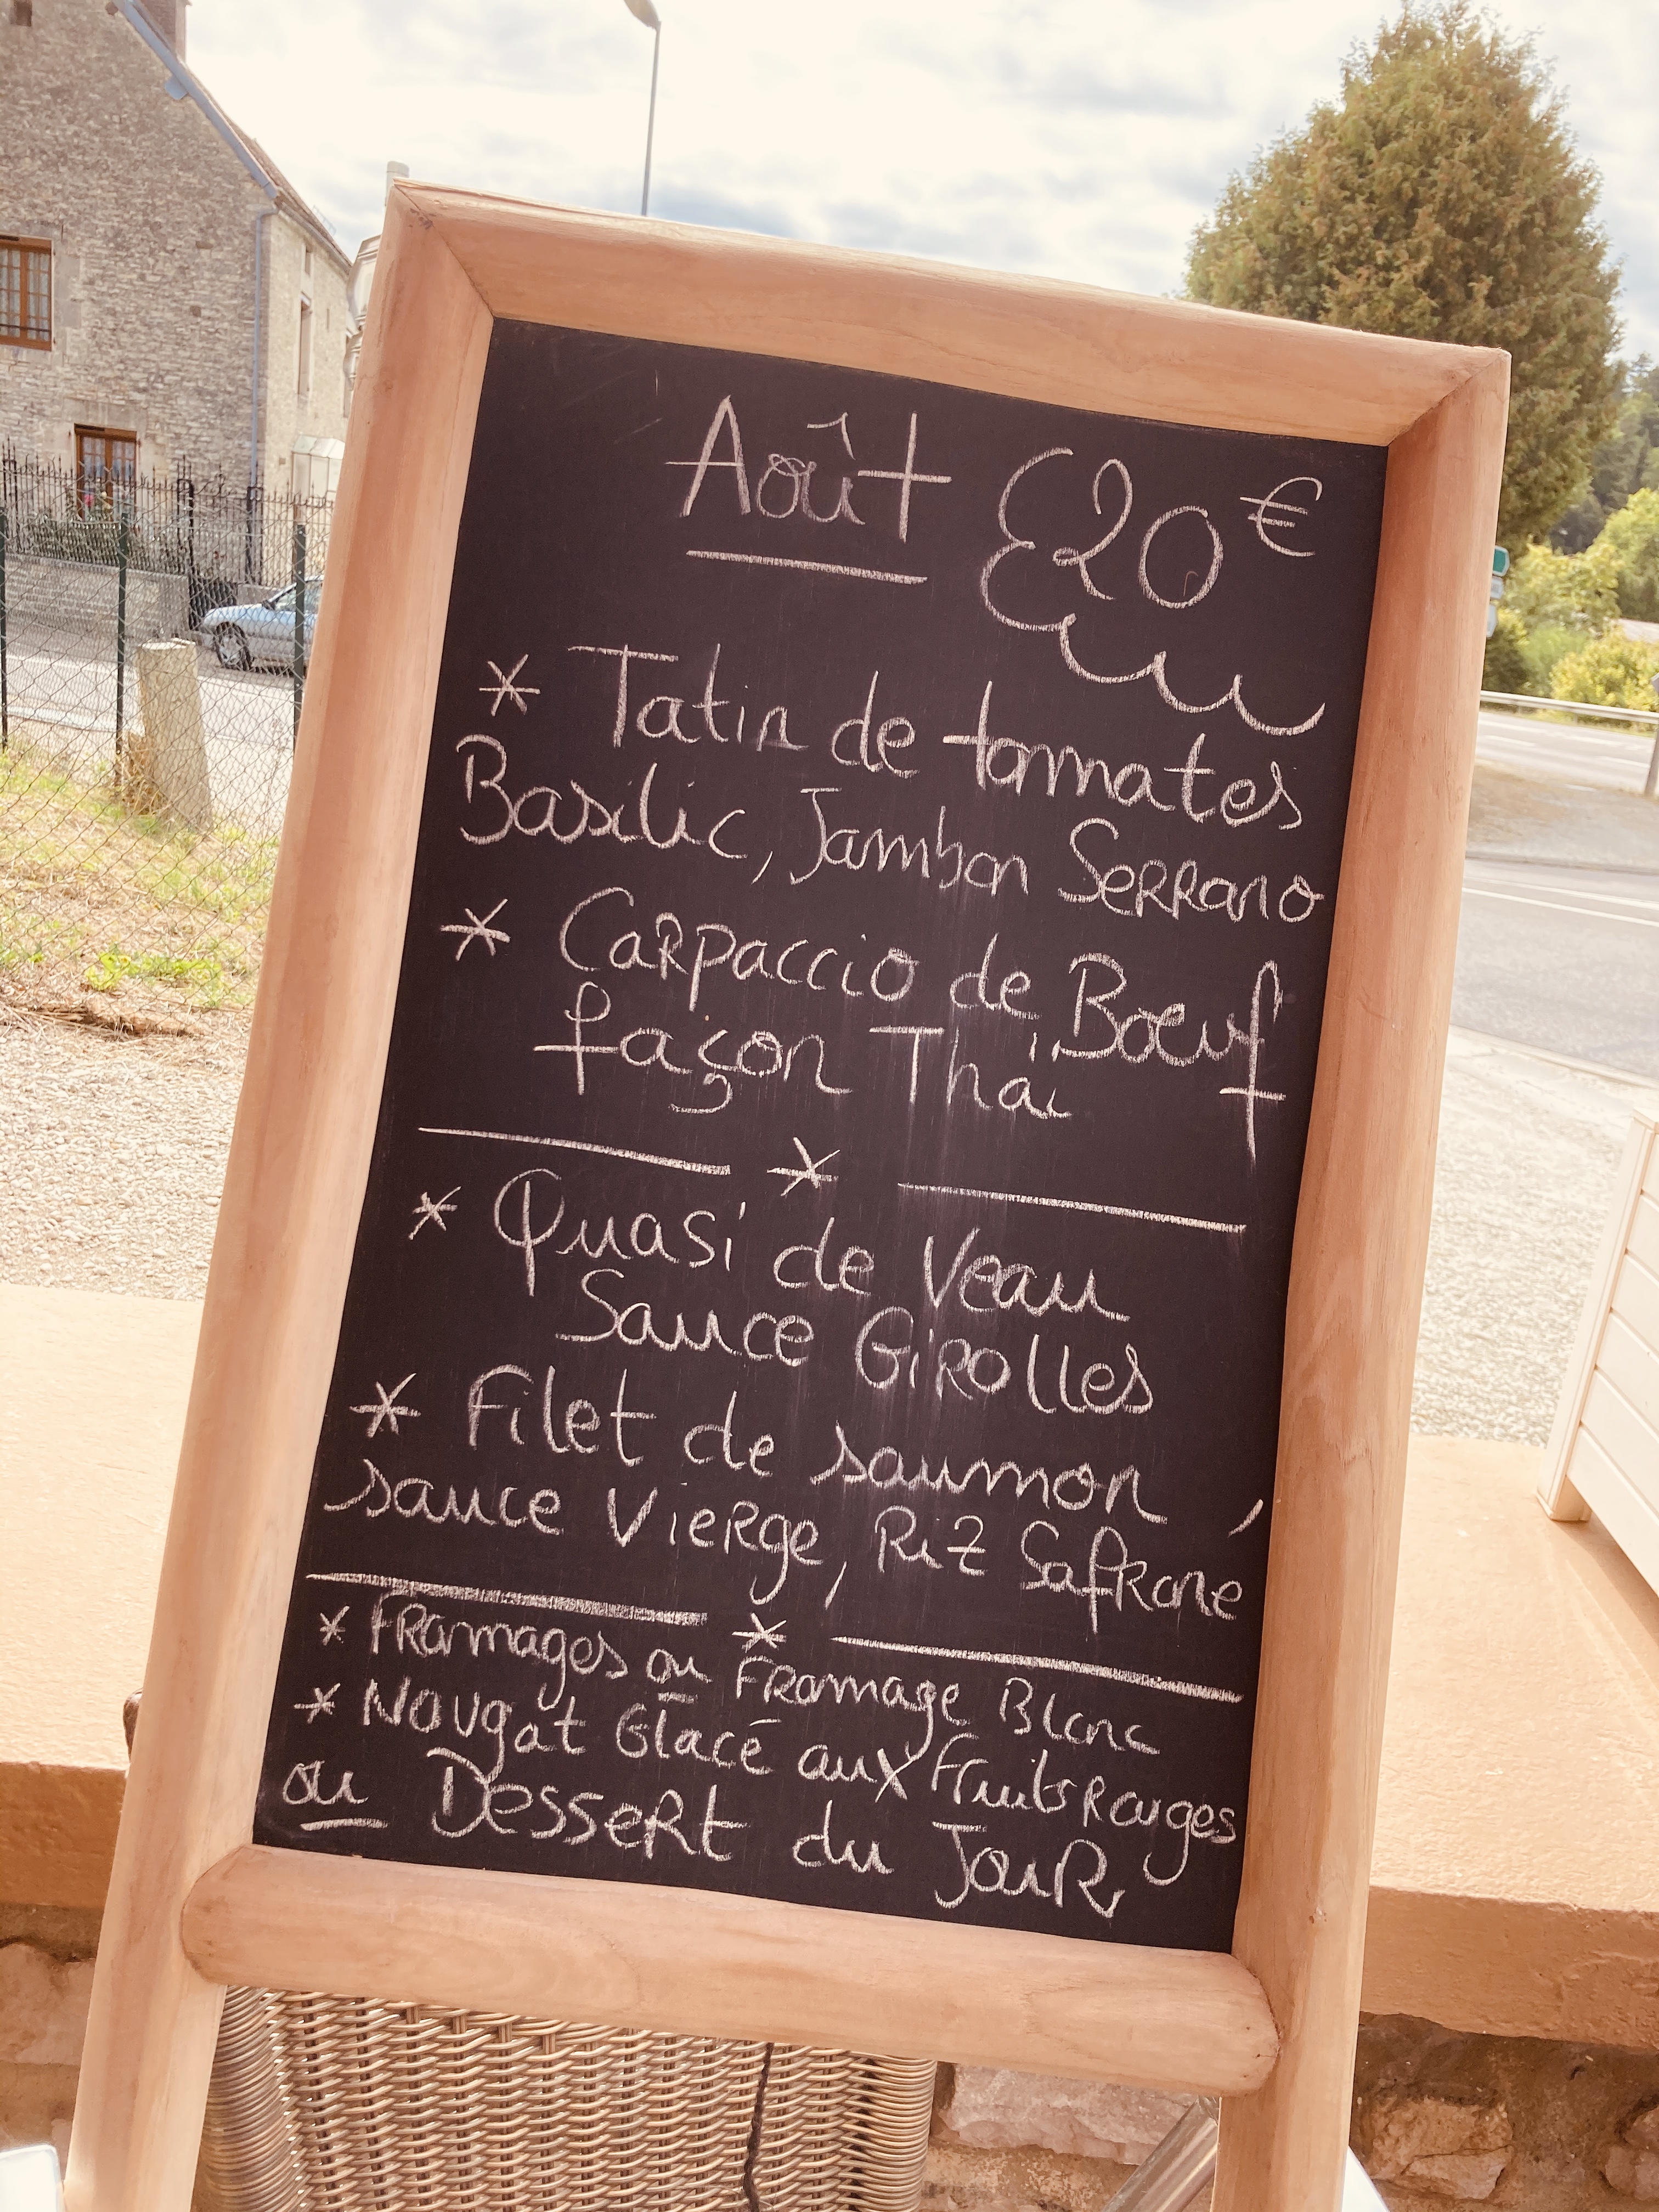 Août 20€
* Tatin de tomates
Basilic, Jambon Serrano
* Carpaccio de Bœuf
façon Thaï
*
* Quasi de Veau
Sauce Girolles
* Filet de saumon,
sauce Vierge, Riz Safrane
*
* Fromages ou Fromage Blanc
* Nougat Glacé aux Fruits Rouges
ou Dessert du Jour